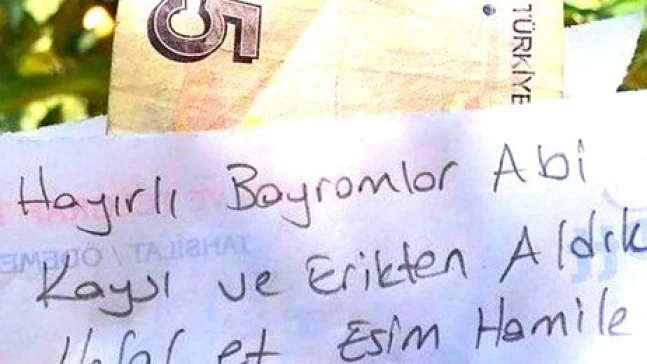 5
TÜRKİYE
Hayırlı Bayramlar Abi
Kayısı ve Erikten Aldık
Helal et Eşim Hamile
TAHSİLAT / ÖDEME